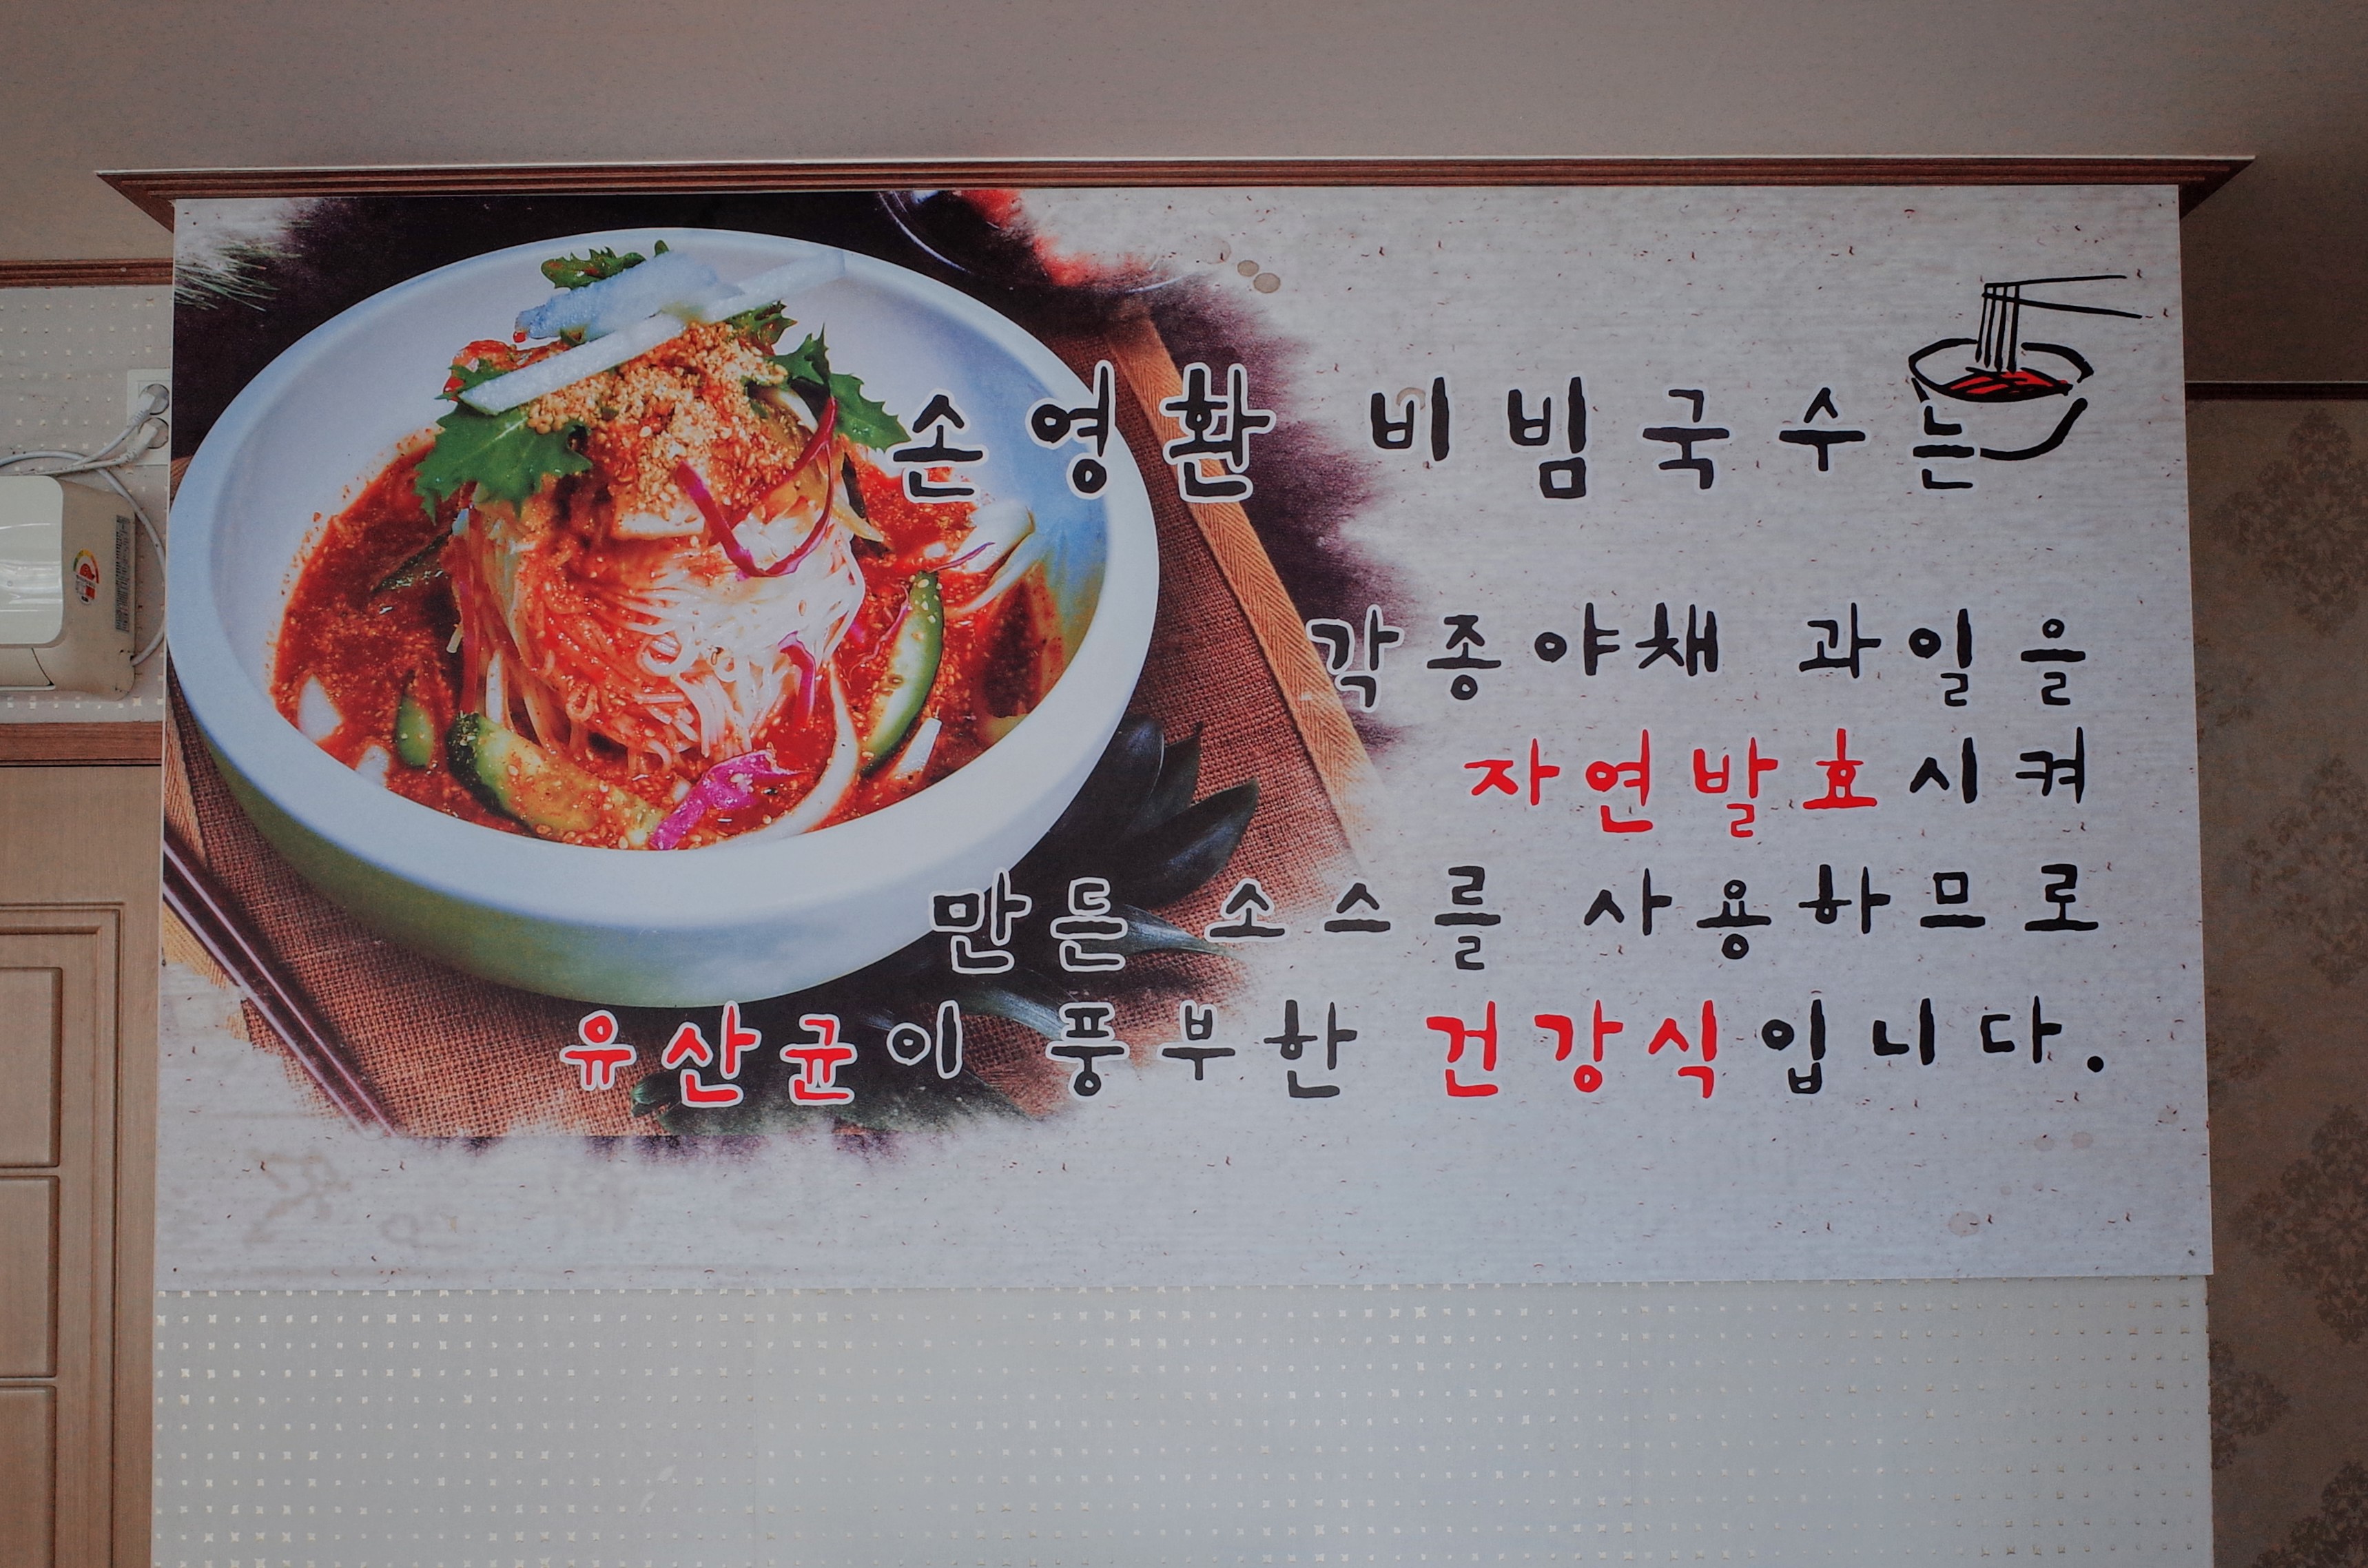 손영환 비빔국수는
각종야채 과일을
자연발효시켜
만든 소스를 사용하므로
유산균이 풍부한 건강식입니다.